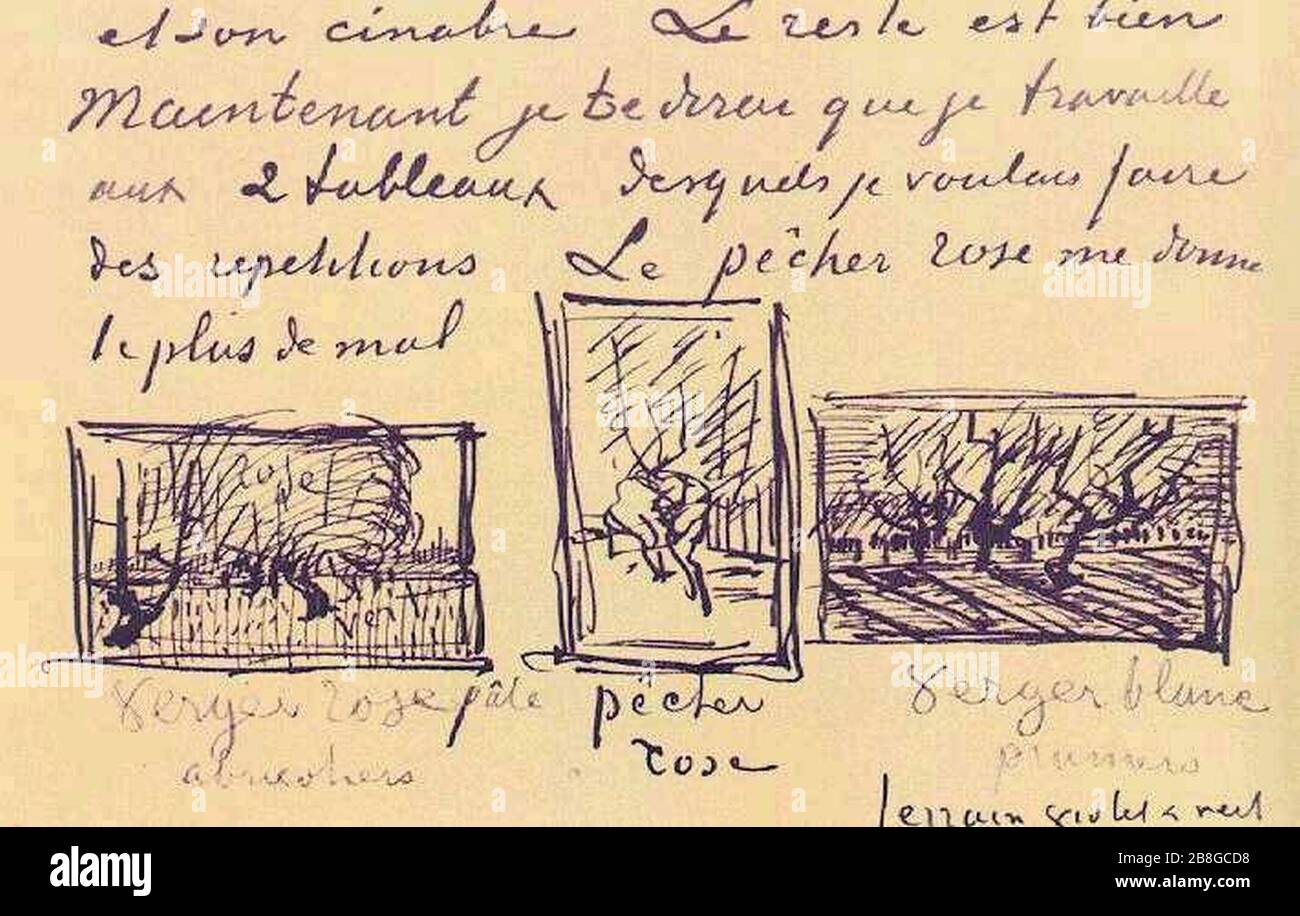 et son cinabre Le reste est bien
Maintenant je te dirai que je travaille
aux 2 tableaux desquels je voulais faire
des repetitions Le pêcher rose me donne
le plus de mal
rose
ver
verger rose pâle
abricotiers
pêcher
rose
verger blanc
pruniers
terrain violet & vert
alamy
Image ID: 2B8GCD8
www.alamy.com